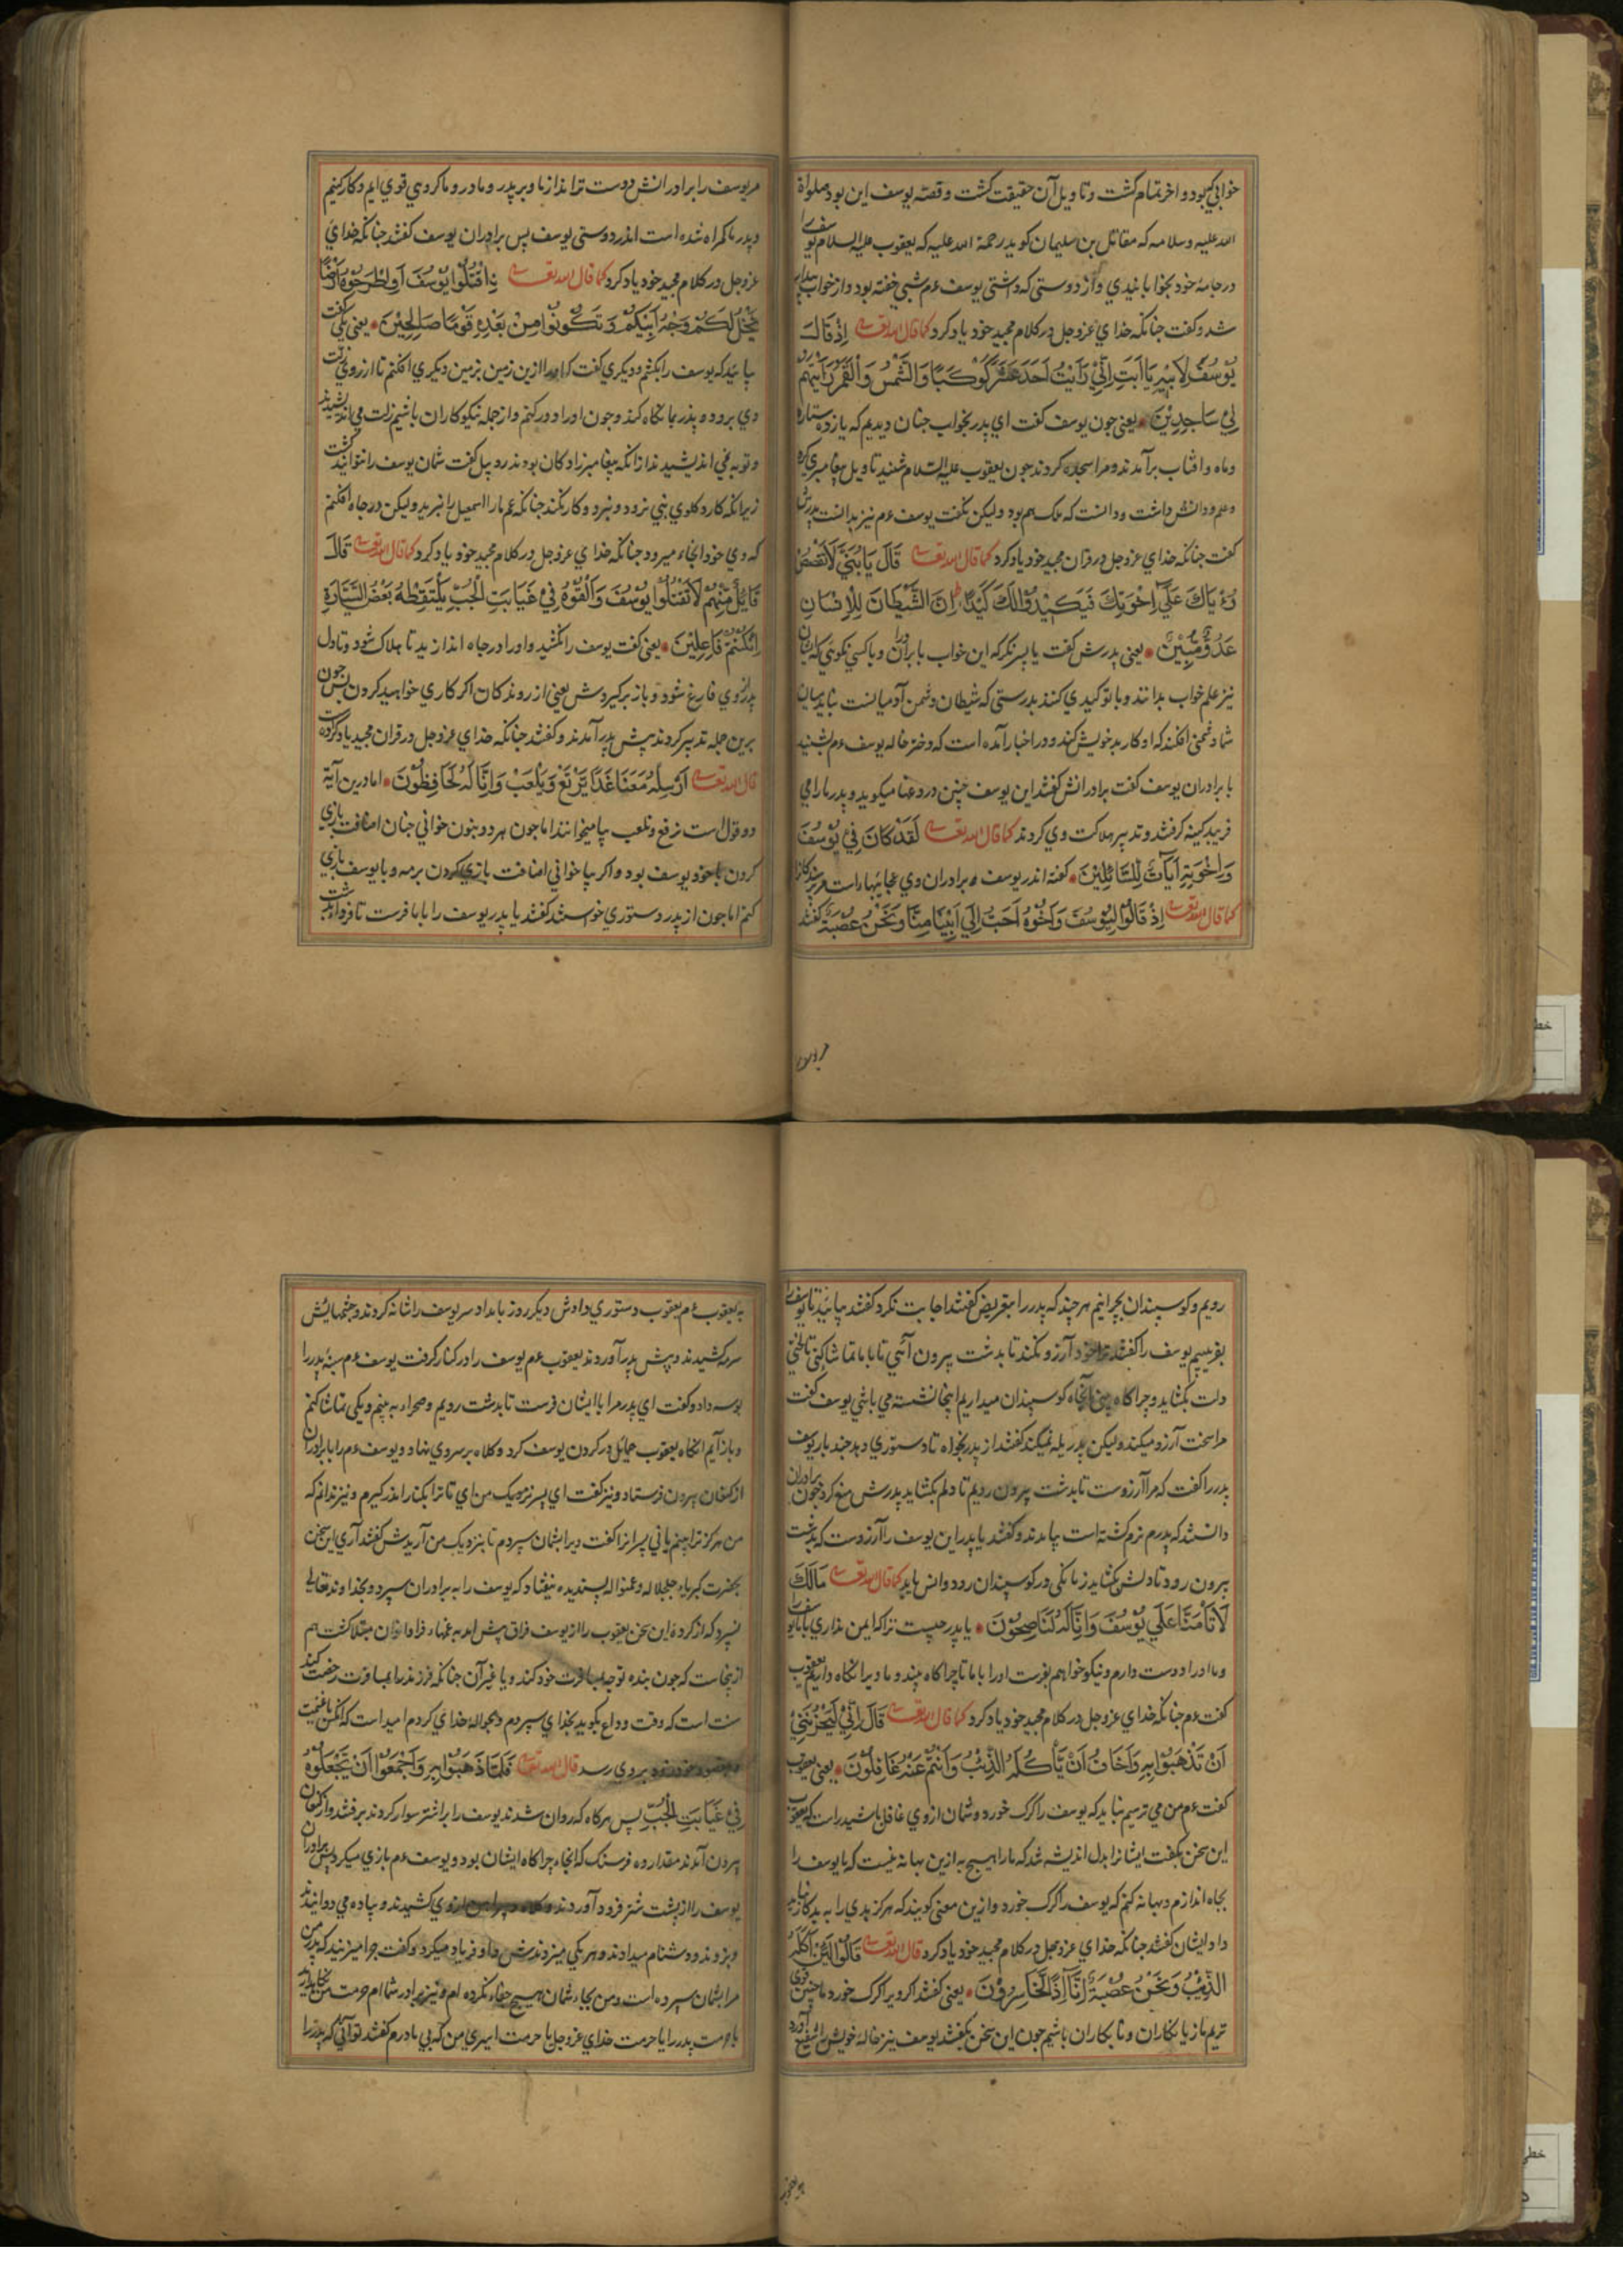 خوابي كه بود و اخر تمام كشت و تاويل آن حقيقت كشت و قصّه يوسف اين بود صلواة
الله عليه و سلامه كه مقاتل بن سليمان كويد رحمة الله عليه كه يعقوب عليه السلام يوسف را
در جامهٔ خود بخوابانيدي و از دوستي كه داشتي يوسف عم شبي خفته بود و از خواب بيدار
شد و كفت جنانكه خداي عزوجل در كلام مجيد خود ياد كرد كما قال الله تعالى إِذْ قَالَ
يُوسُفُ لِأَبِيهِ يَا أَبَتِ إِنِّي رَأَيْتُ أَحَدَ عَشَرَ كَوْكَبًا وَالشَّمْسَ وَالْقَمَرَ رَأَيْتُهُمْ
لِي سَاجِدِيْنَ يعني جون يوسف كفت اي پدر بخواب جنان ديدم كه يازده ستاره
و ماه و افتاب برآمدند و مرا سجده كردند جون يعقوب عليه السّلام شنيد تاويل پيغامبري كرد
و علم و دانش داشت و دانست كه ملك هم بود وليكن نكفت يوسف عم نيز بدانست پدرش
كفت جنانكه خداي عزوجل در قران مجيد خود ياد كرد كما قال الله تعالى قَالَ يَا بُنَيَّ لَا تَقْصُصْ
رُءْيَاكَ عَلَى إِخْوَتِكَ فَيَكِيْدُوْا لَكَ كَيْدًا إِنَّ الشَّيْطَانَ لِلْإِنْسَانِ
عَدُوٌّ مُّبِيْنٌ يعني پدرش كفت يا پسر نكر كه اين خواب با برادران و با كسي نكوني كه ايشان
نيز علم خواب بدانند و با تو كيدي كنند بدرستي كه شيطان دشمن آدميانست نبايد ميان
شما دشمني افكند كه او كار بد خويش كند و در اخبار آمده است كه دختر خاله يوسف عم بشنيد
با برادران يوسف كفت برادرانش كفتند اين يوسف چنين دروغها ميكويد و پدر ما را مي
فريبد كينه كرفتند و تدبير هلاكت وي كردند كما قال الله تعالى لَقَدْ كَانَ فِي يُوْسُفَ
وَإِخْوَتِهِ آيَاتٌ لِّلسَّائِلِيْنَ كفته اندر يوسف و برادران وي عجايبهاست
كما قال الله تعالى إِذْ قَالُوْا لَيُوْسُفُ وَأَخُوْهُ أَحَبُّ إِلَى أَبِيْنَا مِنَّا وَنَحْنُ عُصْبَةٌ كفتند
مر يوسف را برادرانش دوست تراند از ما و بر پدر و مادر و ما كروهي قوي ايم و كار كنيم
و پدر ما كمراه شده است اندر دوستي يوسف پس برادران يوسف كفتند جنانكه خداي
عزوجل در كلام مجيد خود ياد كرد كما قال الله تعالى اقْتُلُوْا يُوْسُفَ أَوِ اطْرَحُوْهُ أَرْضًا
يَخْلُ لَكُمْ وَجْهُ أَبِيْكُمْ وَتَكُوْنُوْا مِنْ بَعْدِهِ قَوْمًا صَالِحِيْنَ يعني يكي كفت
بيائيد كه يوسف را بكشم و ديكري كفت كه او را ازين زمين بزمين ديكري افكنم تا از روي
وي برود و پدر بما نكاه كند و جون او را دور كنم و از جمله نيكوكاران باشيم
و توبه مي انديشيدند از آنكه پيغامبر زادكان بودند روبيل كفت شمان يوسف را نتوانيد كشت
زيرا كه كارد كلوي نبي نبرد و كار نكند جنانكه عم ما را اسمعيل را نبريد وليكن در جاه افكنم
كه وي خود آنجا ميرود جنانكه خداي عزوجل در كلام مجيد خود ياد كرد كما قال الله تعالى قَالَ
قَائِلٌ مِّنْهُمْ لَا تَقْتُلُوْا يُوْسُفَ وَأَلْقُوْهُ فِي غَيَابَتِ الْجُبِّ يَلْتَقِطْهُ بَعْضُ السَّيَّارَةِ
إِنْ كُنْتُمْ فَاعِلِيْنَ يعني كفت يوسف را نكشيد و او را در جاه اندازيد تا هلاك شود و تا دل
پدر از وي فارغ شود و باز بر كيردش يعني از روندكان اكر كاري خواهيد كردن پس جون
برين جمله تدبير كردند پيش پدر آمدند و كفتند جنانكه خداي عزوجل در قران مجيد ياد كرده
قال الله تعالى أَرْسِلْهُ مَعَنَا غَدًا يَرْتَعْ وَيَلْعَبْ وَإِنَّا لَهُ لَحَافِظُوْنَ اما درين آية
دو قول است نرتع و نلعب بيا ميخوانند اما جون هر دو بنون خواني جنان اضافت بازي
كردن با خود يوسف بود و اكر بيا خواني اضافت بازي كردن برمه و با يوسف بازي
كنم اما جون از پدر دستوري خواستند كفتند يا پدر يوسف را با ما فرست تا فردا بدشت
رويم و كوسپندان بچرانيم هر چند كه پدر را بتعريض كفتند اجابت نكرد كفتند بيائيد تا يوسف را
بفريبيم يوسف را كفتند ترا خود آرزو نكند تا بدشت بيرون آئي تا با ما تماشا كني تا لختي
دلت بكشايد و چراكاه آنجاه كوسپندان ميداريم اينجا نشسته مي باشي يوسف كفت
مرا سخت آرزو ميكند وليكن پدر يله نميكند كفتند از پدر بخواه تا دستوري دهد چند بار يوسف
پدر را كفت كه مرا آرزوست تا بدشت بيرون رويم تا دلم بكشايد پدرش منع كرد جون برادران
دانستند كه پدرم نرم كشته است بيامدند و كفتند يا پدر اين يوسف را آرزوست كه بدشت
بيرون رود تا دلش بكشايد زمانكي در كوسپندان رود و انس يابد كما قال الله تعالى مَا لَكَ
لَا تَأْمَنَّا عَلَى يُوْسُفَ وَإِنَّا لَهُ لَنَاصِحُوْنَ يا پدر چيست ترا كه ايمن نداري با ما يوسف را
و ما او را دوست دارم و نيكو خواهم بفرست او را با ما تا چراكاه بيند و ما ويرا نكاه داريم يعقوب
كفت عم جنانكه خداي عزوجل در كلام مجيد خود ياد كرد كما قال الله تعالى قَالَ إِنِّي لَيَحْزُنُنِيْ
أَنْ تَذْهَبُوْا بِهِ وَأَخَافُ أَنْ يَأْكُلَهُ الذِّئْبُ وَأَنْتُمْ عَنْهُ غَافِلُوْنَ يعني يعقوب
كفت عم من مي ترسيم نبايد كه يوسف را كرك خورد و شمان از وي غافل باشيد راست كه يعقوب
اين سخن بكفت ايشانرا بدل انديشه شد كه ما را هيچ به ازين بهانه نيست كه يا يوسف را
بجاه اندازم و بهانه كنم كه يوسف را كرك خورد و ازين معني كويند كه هركز بدي را به بد كار نبايد
داد و ايشان كفتند جنانكه خداي عزوجل در كلام مجيد خود ياد كرد قال الله تعالى قَالُوْا لَئِنْ أَكَلَهُ
الذِّئْبُ وَنَحْنُ عُصْبَةٌ إِنَّا إِذًا لَّخَاسِرُوْنَ يعني كفتند اكر ويرا كرك خورد ما چنين قوي
تريم ما زيانكاران و نابكاران باشيم جون اين سخن بكفتند يوسف نيز خاله خويش را شفيع آورد
به يعقوب عم يعقوب دستوري دادش ديكر روز بامداد سر يوسف را شانه كردند و چشمهايش
سرمه كشيدند و پيش پدر آوردند يعقوب عم يوسف را در كنار كرفت يوسف عم پدر را
بوسه داد و كفت اي پدر مرا با ايشان فرست تا بدشت رويم و صحراء به بينم و يكي تماشا كنم
و باز آيم انكاه يعقوب حمائل در كردن يوسف كرد و كلاه بر سر وي نهاد و يوسف عم را با برادران
از كنعان بيرون فرستاد و نيز كفت اي پسر نزديك من اي تا ترا بكنار اندر كيرم و نيز ندانم كه
من هركز ترا بينم يا ني پسرانرا كفت ويرا بشمان سپردم تا بنزديك من آريدش كفتند آري اين سخن
بحضرت كبرياء جلجلاله و عمنواله پسنديده نيفتاد كه يوسف را به برادران سپرد و بخداوند تعالى
نسپرد كه از كرده اين سخن يعقوب را از يوسف فراق پيش امد به غمهاء فراوان مبتلا كشت هم
ازينجاست كه جون بنده توجه بمسافرت خود كند و يا غير آن جنانكه فرزند را بمسافرت رخصت كند
سنت است كه وقت وداع بكويد بخداي سپردم و بحوالهٔ خداي كردم اميد است كه آنكس با غنيمت
و بمقصود خود زود بروي رسد قال الله تعالى فَلَمَّا ذَهَبُوْا بِهِ وَأَجْمَعُوْا أَنْ يَجْعَلُوْهُ
فِيْ غَيَابَتِ الْجُبِّ پس هركاه كه روان شدند يوسف را بر اشتر سوار كردند برفتند و از كنعان
بيرون آمدند مقدار ده فرسنك كه انجاء چراكاه ايشان بود و يوسف عم بازي ميكرد پس برادران
يوسف را از پشت شتر فرود آوردند و كلاه و پيراهن از وي كشيدند و پياده مي دوانيدند
و بزدند و دشنام ميدادند و هر يكي ميزدندش و او فرياد ميكرد و كفت چرا ميزنيد كه پدر من
مرا بشمان سپرده است و من بجاء شمان هيچ جفاء نكرده ام و نيز برادر شما ام حرمت من
يا حرمت پدر را يا حرمت خداي عزوجل يا حرمت اسيري من كه بي مادرم كفتند تو آني كه پدر را